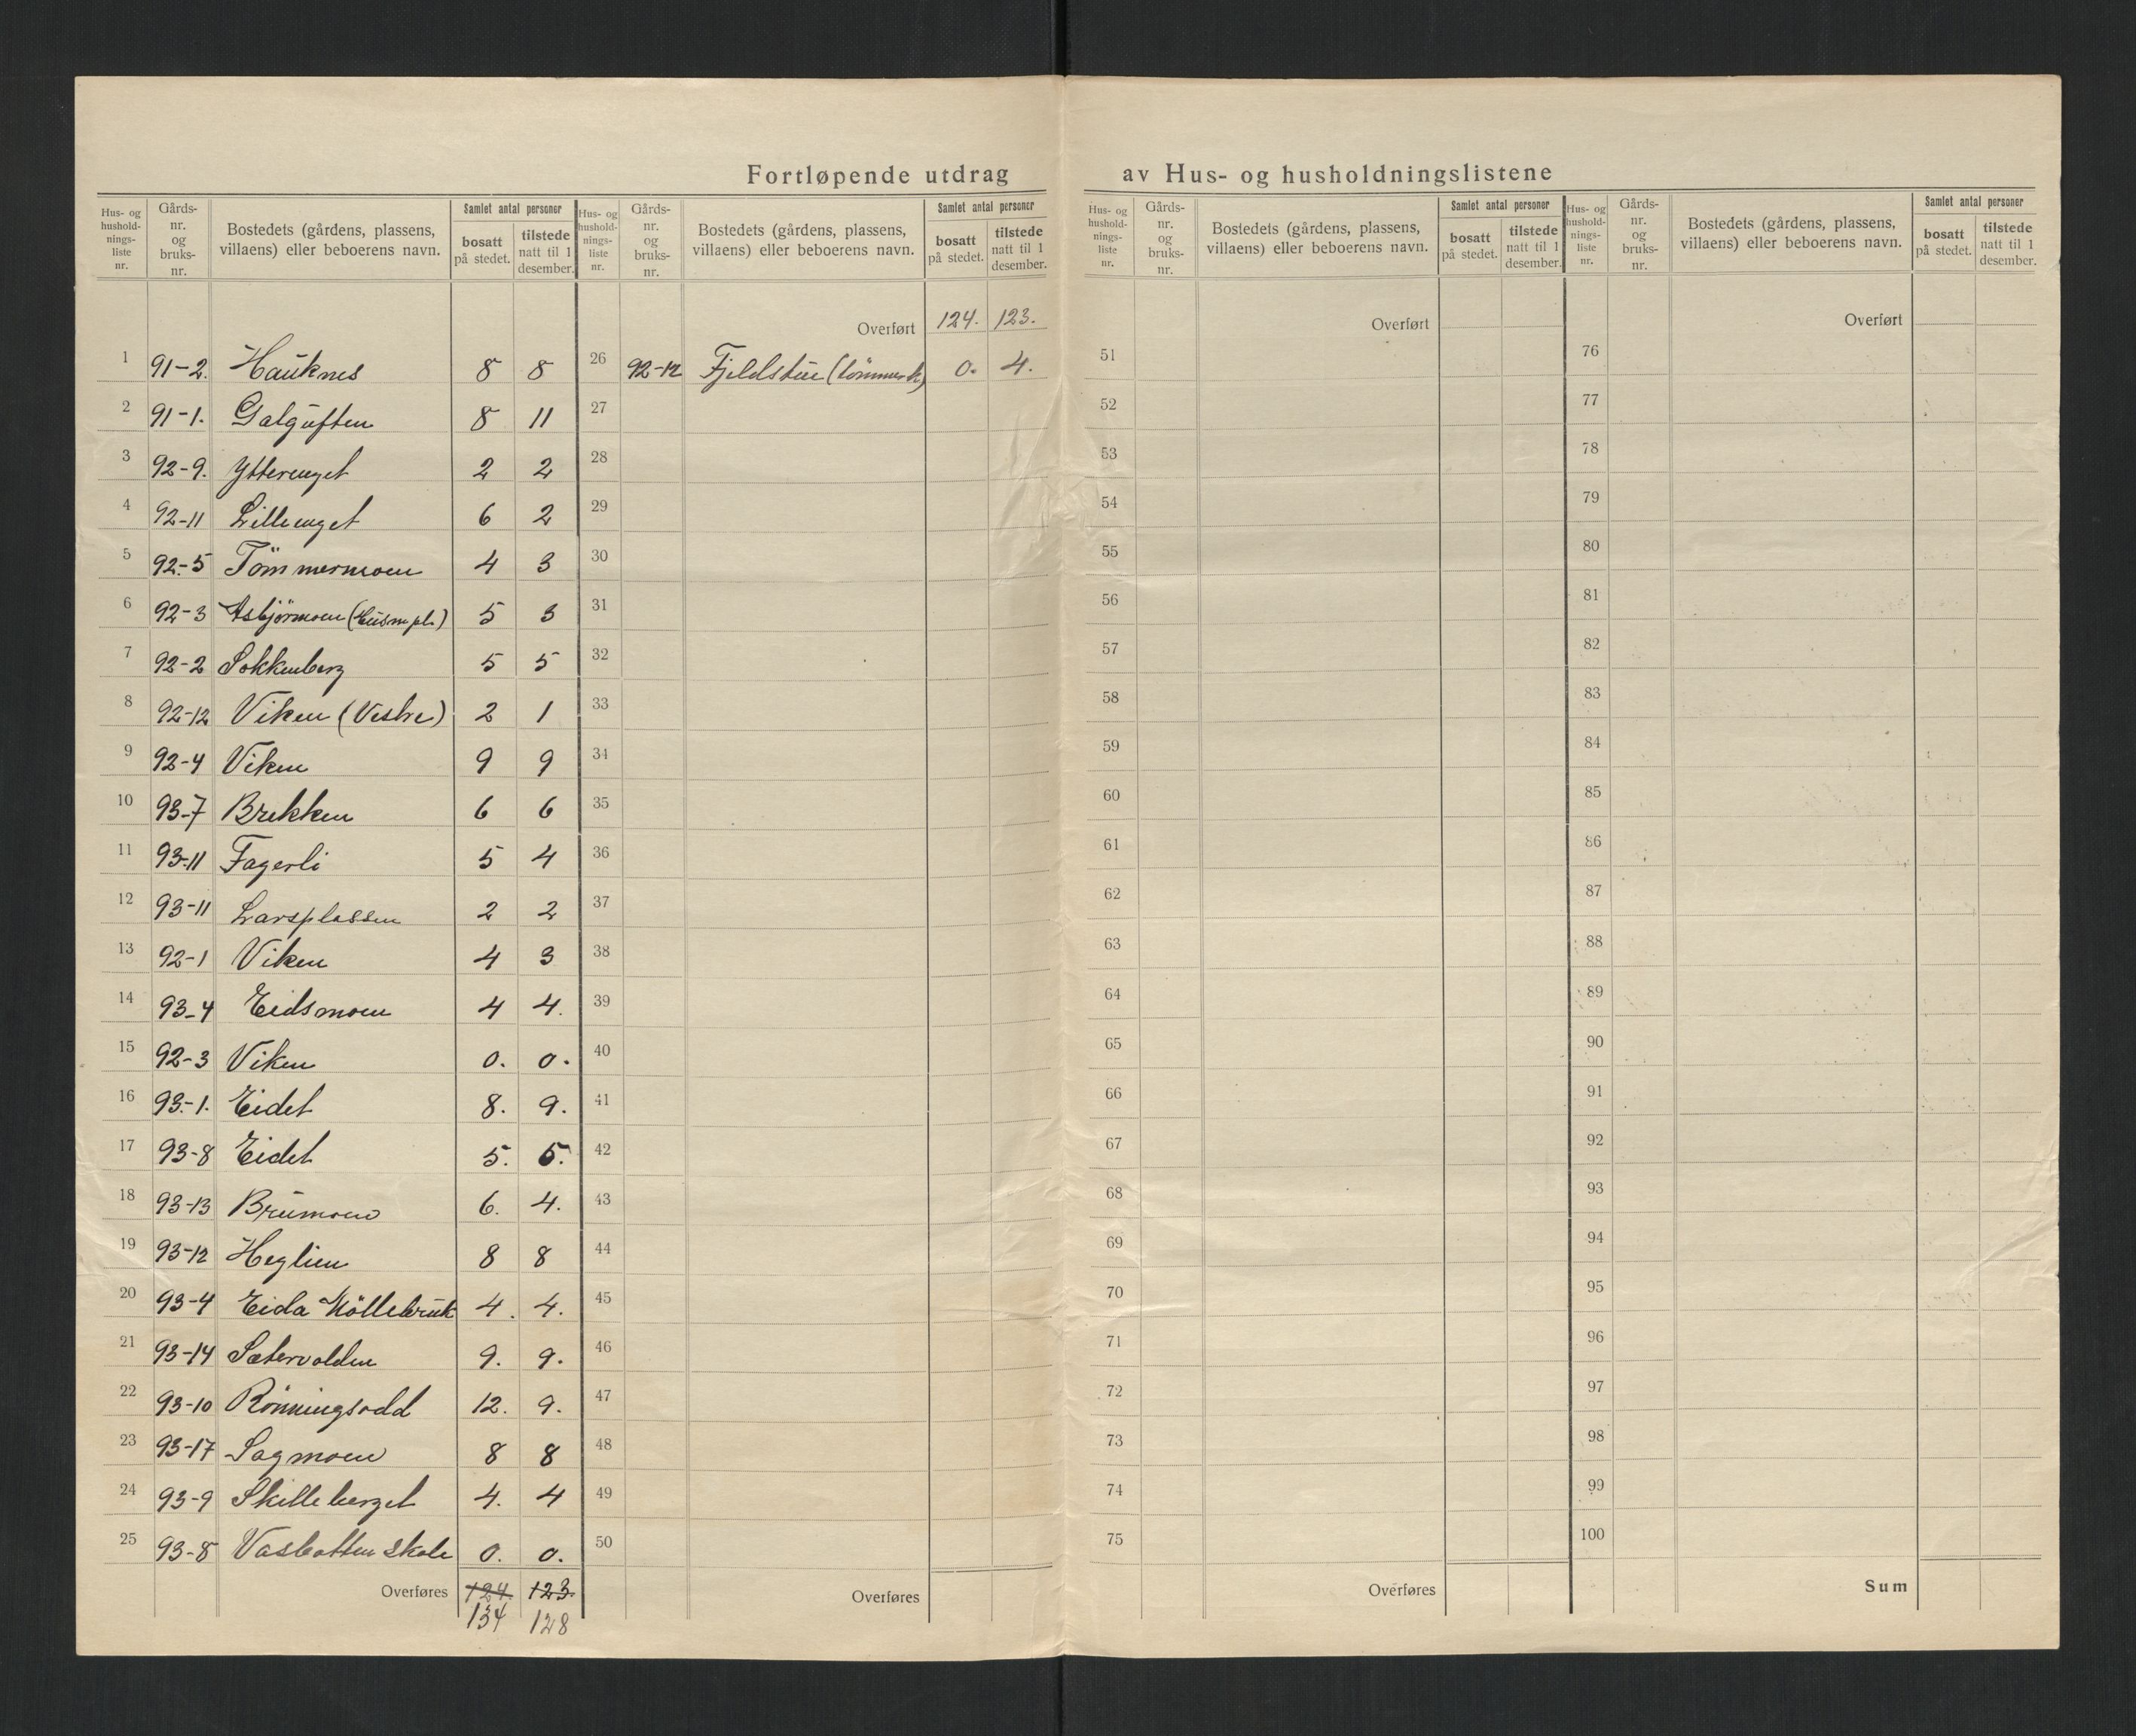 Fortløpende utdrag av Hus- og husholdningslistene
Hus- og hushold-nings-liste nr. Gårds-nr. og bruks-nr. Bostedets (gårdens, plassens, villaens) eller beboerens navn. Samlet antal personer bosatt på stedet. tilstede natt til 1 desember.
Hus- og hushold-nings-liste nr. Gårds-nr. og bruks-nr. Bostedets (gårdens, plassens, villaens) eller beboerens navn. Samlet antal personer bosatt på stedet. tilstede natt til 1 desember.
Hus- og hushold-nings-liste nr. Gårds-nr. og bruks-nr. Bostedets (gårdens, plassens, villaens) eller beboerens navn. Samlet antal personer bosatt på stedet. tilstede natt til 1 desember.
Hus- og hushold-nings-liste nr. Gårds-nr. og bruks-nr. Bostedets (gårdens, plassens, villaens) eller beboerens navn. Samlet antal personer bosatt på stedet. tilstede natt til 1 desember.
1 91-2. Hauknes 8 8
2 91-1. Galguften 8 11
3 92-9. Ytterenget 2 2
4 92-11 Lilleenget 6 2
5 92-5 Tömmermoen 4 3
6 92-3 Asbjörmoen (Husm.pl.) 5 3
7 92-2 Sokkenberg 5 5
8 92-12 Viken (Vestre) 2 1
9 92-4 Viken 9 9
10 93-7 Brekken 6 6
11 93-11 Fagerli 5 4
12 93-11 Larsplassen 2 2
13 92-1 Viken 4 3
14 93-4 Eidsmoen 4 4.
15 92-3 Viken 0. 0.
16 93-1. Eidet 8. 9.
17 93-8 Eidet 5. 5.
18 93-13 Brumoen 6. 4.
19 93-12 Heglien 8 8
20 93-4 Eida Möllebruk 4. 4.
21 93-14 Sætervolden 9. 9.
22 93-10 Rönningsodd 12. 9.
23 93-17 Sagmoen 8 8
24 93-9 Skilleberget 4. 4
25 93-8 Vasbotten Skole 0. 0.
Overføres 124. 123.
134 128
Overført 124. 123.
26 92-12 Fjeldstue 0. 4.
27
28
29
30
31
32
33
34
35
36
37
38
39
40
41
42
43
44
45
46
47
48
49
50
Overføres
Overført
51
52
53
54
55
56
57
58
59
60
61
62
63
64
65
66
67
68
69
70
71
72
73
74
75
Overføres
Overført
76
77
78
79
80
81
82
83
84
85
86
87
88
89
90
91
92
93
94
95
96
97
98
99
100
Sum